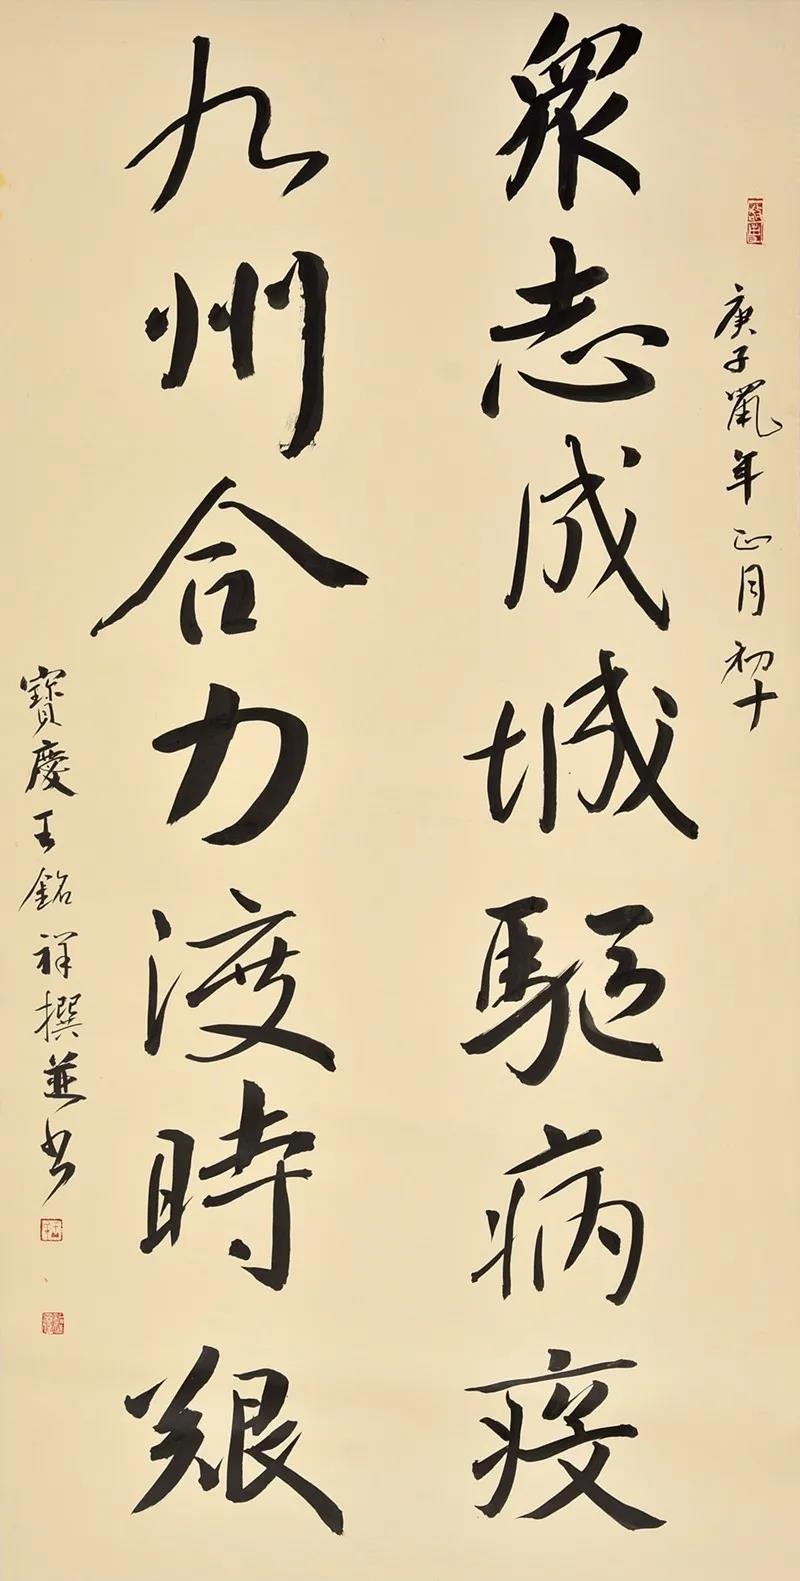 庚子鼠年正月初十
眾志成城驅病疫
九州合力渡時艱
寶慶王銘祥撰並书